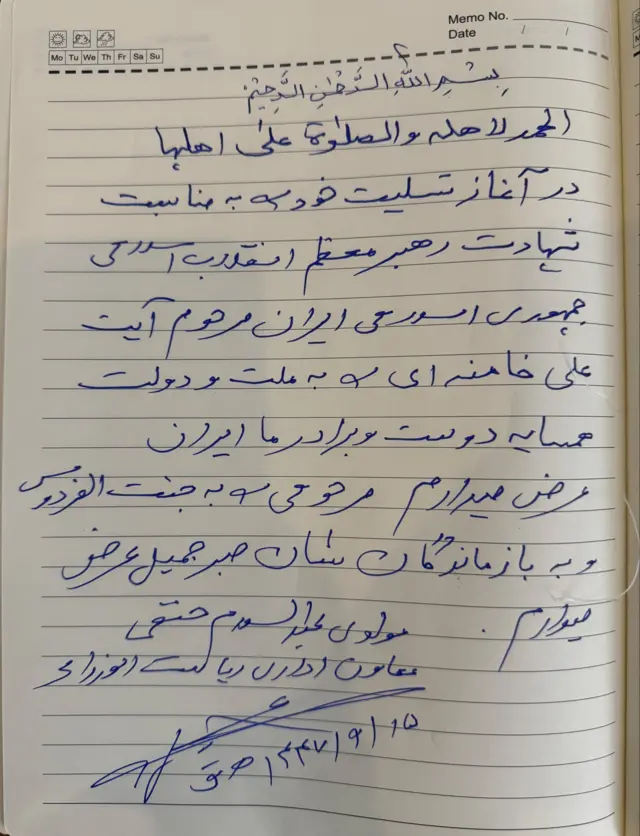 Memo No.
Date / /
Mo Tu We Th Fr Sa Su
بِسْمِ اللَّهِ الرَّحْمٰنِ الرَّحِيْمِ
الحمد لاهله والصلوة علی اهلها
در آغاز تسلیت خود را به مناسبت
شهادت رهبر معظم انقلاب اسلامی
جمهوری اسلامی ایران مرحوم آیت
علی خامنه ای را به ملت و دولت
همسایه دوست و برادر ما ایران
عرض میدارم مرحومی را به جنت الفردوس
و به بازماندگان شان صبر جمیل عرض
میدارم .
مولوی عبدالسلام حنفی
معاون اداری ریاست الوزراء
۱۴۴۷/۹/۱۵ ه‍ ق